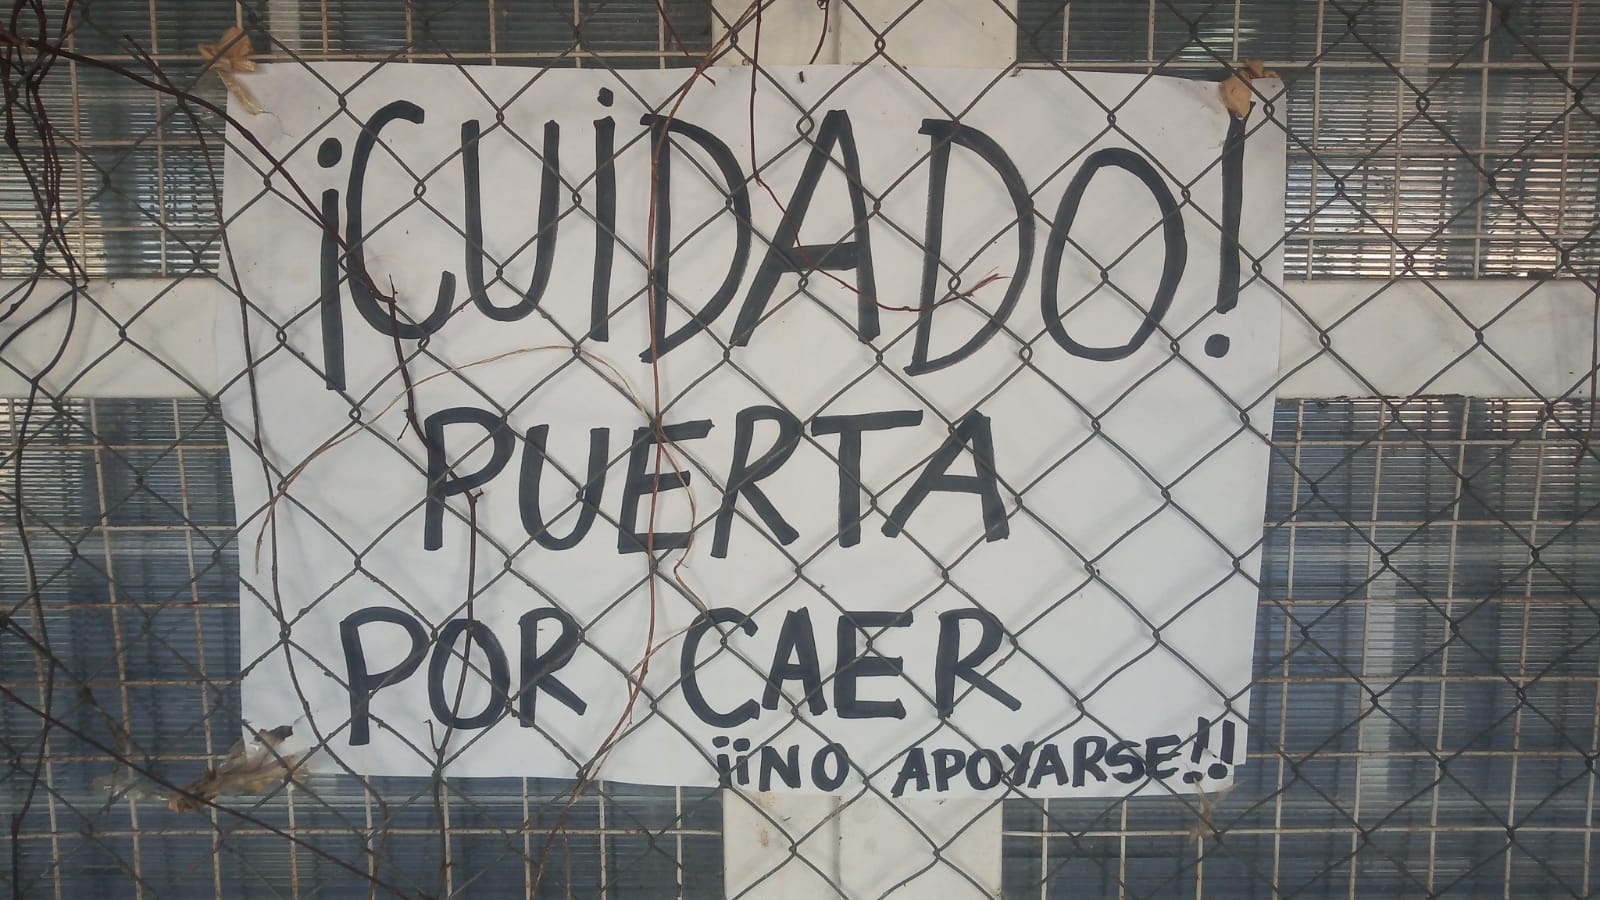 ¡CUIDADO!
PUERTA
POR CAER
¡¡NO APOYARSE!!